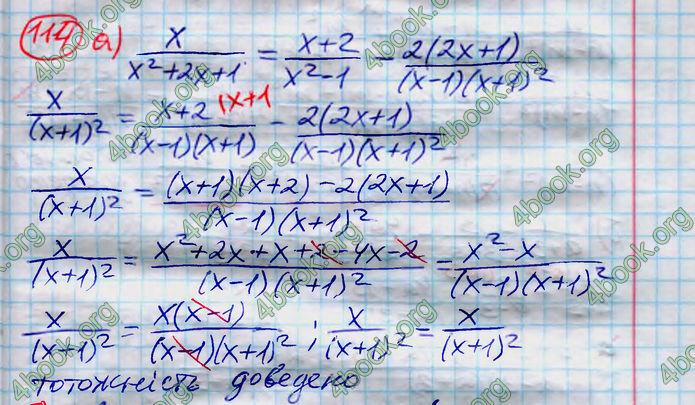 114 а) x/(x²+2x+1) = (x+2)/(x²-1) - 2(2x+1)/((x-1)(x+1)²)
x/(x+1)² = (x+2)/((x-1)(x+1)) (x+1 - 2(2x+1)/((x-1)(x+1)²)
x/(x+1)² = ((x+1)(x+2)-2(2x+1))/((x-1)(x+1)²)
x/(x+1)² = (x²+2x+x+2-4x-2)/((x-1)(x+1)²) = (x²-x)/((x-1)(x+1)²)
x/(x+1)² = x(x-1)/((x-1)(x+1)²) ; x/(x+1)² = x/(x+1)²
тотожність доведено
4book.org